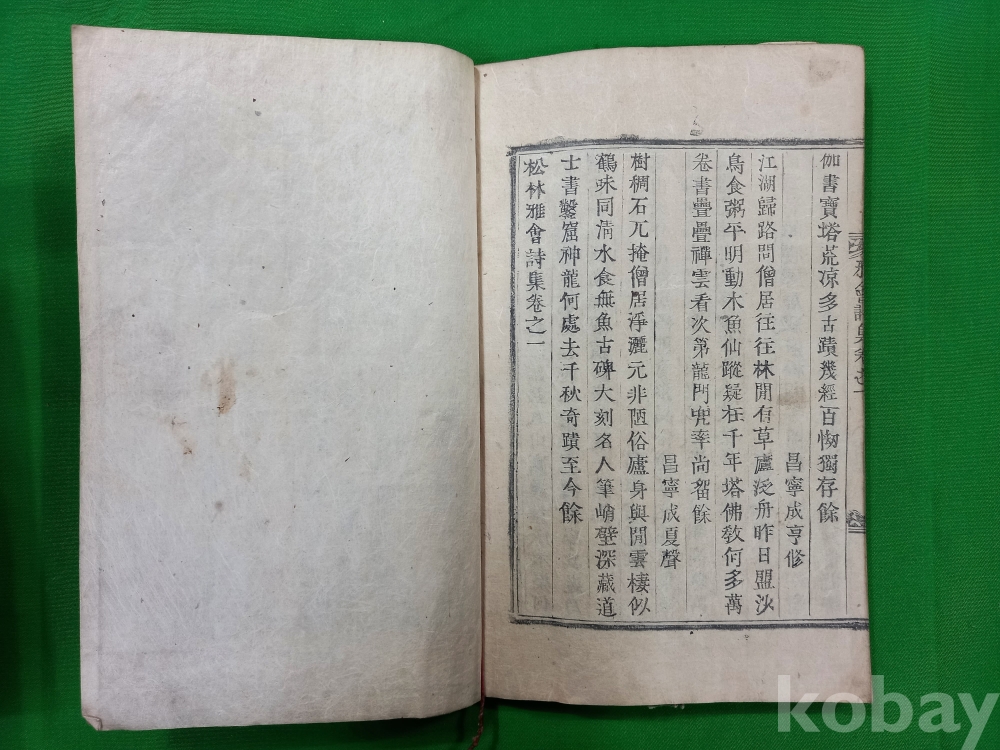 伽書寶塔荒凉多古蹟幾經百惱獨存餘
昌寧成亨修
江湖歸路問僧居往往林間有草廬泛舟昨日盟沙
鳥食粥平明動木魚仙蹤疑在千年塔佛敎何多萬
卷書疊疊禪雲看次第龍門兜率尚畱餘
昌寧成夏聲
樹稠石兀掩僧居淨灑元非陋俗廬身與閒雲棲似
鶴味同淸水食無魚古碑大刻名人筆峭壁深藏道
士書鑿窟神龍何處去千秋奇蹟至今餘
松林雅會詩集卷之一
kobay